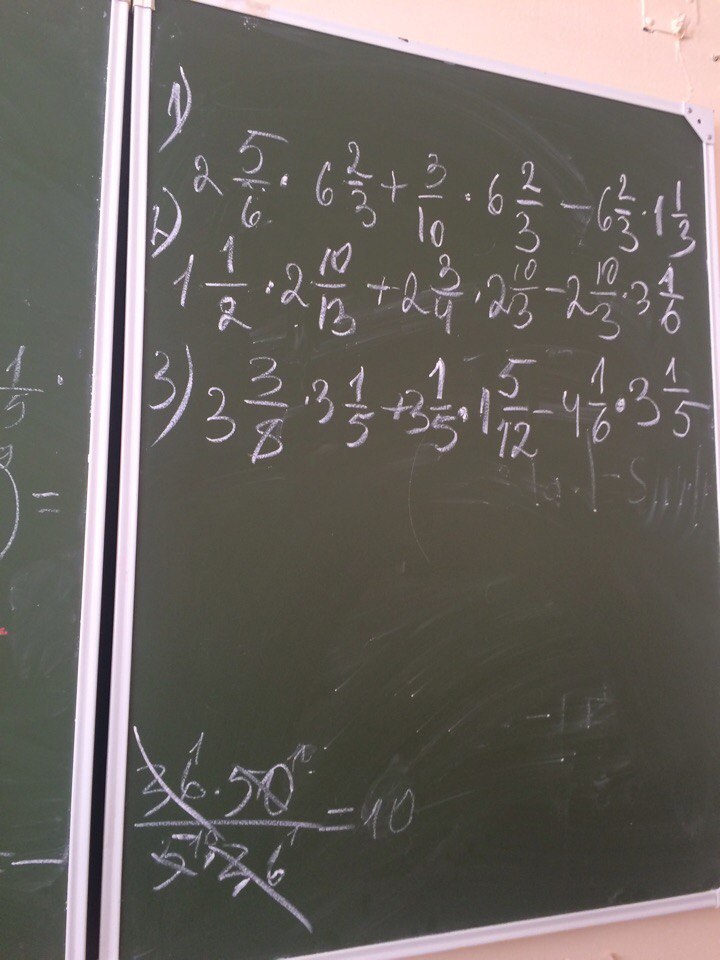 1)
2 5/6 · 6 2/3 + 3/10 · 6 2/3 - 6 2/3 · 1 1/3
2)
1 1/2 · 2 10/13 + 2 3/4 · 2 10/3 - 2 10/3 · 3 1/6
3) 3 3/8 · 3 1/5 + 3 1/5 · 1 5/12 - 4 1/6 · 3 1/5
1/5 ·
) =
= 10